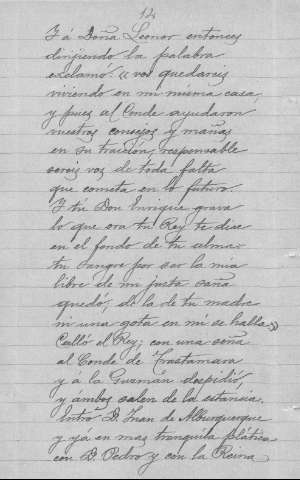 12
Y á Doña Leonor entonces
dirijiendo la palabra
esclamó: «vos quedareis
viviendo en mi misma casa,
y pues al Conde ayudaron
vuestros consejos y mañas
en su traicion, responsable
sereis vos de toda falta
que cometa en lo futuro.
Y tú Don Enrique grava
lo que ora tu Rey te dice
en el fondo de tu alma:
tu sangre por ser la mia
libre de mi justa saña
quedó, de la de tu madre
ni una gota en mí se halla.»
Calló el Rey; con una seña
al Conde de Trastamara
y á la Guzman despidió,
y ambos salen de la estancia.
Entró D. Juan de Alburquerque
y yá en mas tranquila plática
con D. Pedro y con la Reina